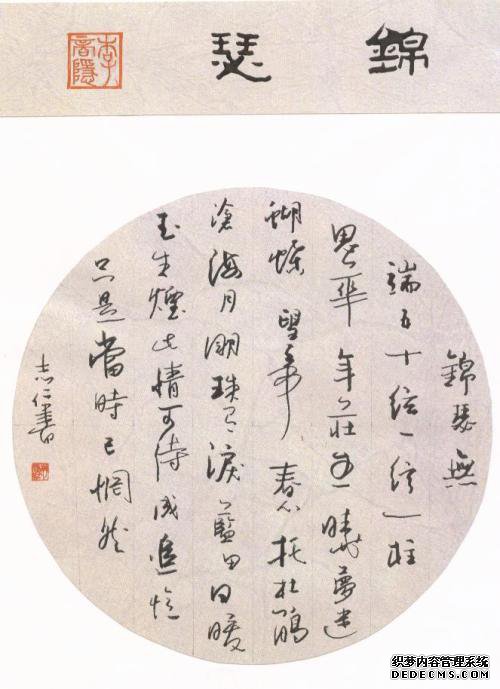 錦瑟
李商隱
錦瑟無
端五十絃一絃一柱
思華年莊生曉夢迷
蝴蝶望帝春心托杜鵑
滄海月明珠有淚藍田日暖
玉生煙此情可待成追憶
只是當時已惘然
志仁書
织梦内容管理系统
DEDECMS.COM